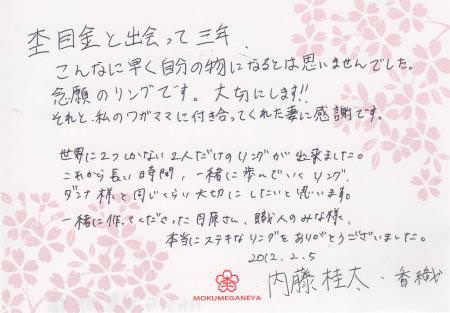 杢目金と出会って三年、
こんなに早く自分の物になるとは思いませんでした。
念願のリングです。大切にします!!
それと、私のワガママに付き合ってくれた妻に感謝です。
世界に2つしかない2人だけのリングが出来ました。
これから長い時間、一緒に歩んでいくリング、
ダンナ様と同じくらい大切にしたいと思います。
一緒に作ってくださった月原さん、職人のみな様、
本当にステキなリングをありがとうございました。
2012.2.5
内藤桂太・香織
MOKUMEGANEYA